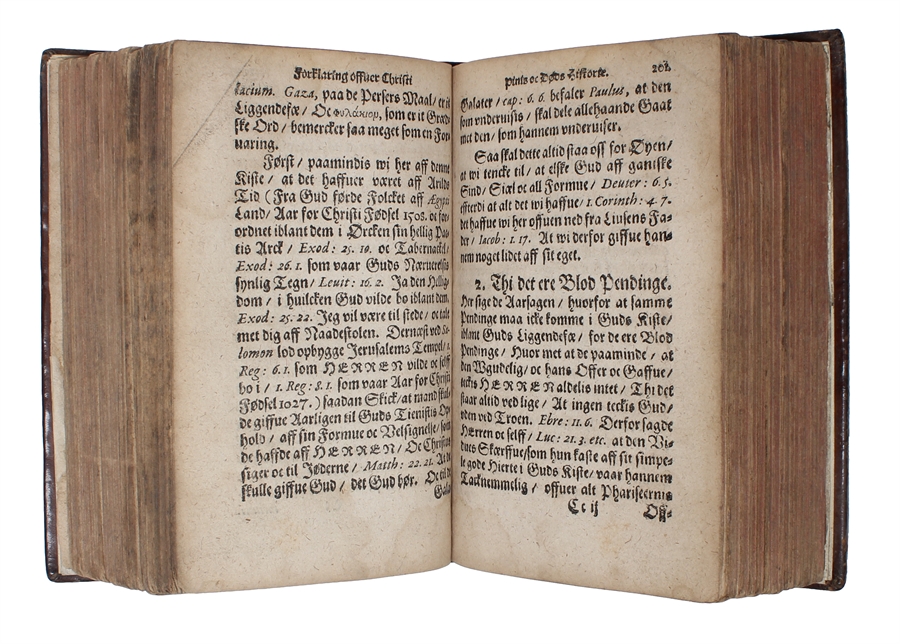 Forklaring offuer Christi
tacium. Gaza, paa de Persers Maal/ er it
Liggendefæ / Oc φυλάκιον, som er it Græ-
ske Ord / bemercker saa meget som en For-
uaring.
Først / paamindis wi her aff denne
Kiste / at det haffuer været aff Arilds
Tid ( Fra Gud førde Folcket aff Ægypti
Land/ Aar for Christi Fødsel 1508. oc for-
ordnet iblant dem i Ørcken sin hellig Pac-
tis Arck / Exod: 25. 10. oc Tabernackel/
Exod: 26. 1. som vaar Guds Næruerelsis
synlig Tegn / Leuit: 16. 2. Ja den Hellig-
dom / i huilcken Gud vilde bo iblant dem,
Exod: 25. 22. Jeg vil være til stede/ oc tale
met dig aff Naadestolen. Dernæst ved Sa-
lomon lod opbygge Jerusalems Tempel/ 1.
Reg: 6. 1. som HERREN vilde oc self
bo i / 1. Reg: 8. 1. som vaar Aar for Christi
Fødsel 1027. ) saadan Skick/ at mand skul-
de giffue Aarligen til Guds Tienistis Op-
hold / aff sin Formue oc Velsignelse/ som
de haffde aff HERREN / Oc Christus
siger oc til Jøderne / Matth: 22. 21. At de
skulle giffue Gud / det Gud bør. Oc til de
Gala-
Pinis oc Døds Historie. 201.
Galater / cap: 6. 6. befaler Paulus, at den
som vnderuisis / skal dele allehaande Gaat
met den / som hannem vnderuiser.
Saa skal dette altid staa oss for Øyen/
at wi tencke til / at elske Gud aff gantske
Sind/ Siæl oc all Formue / Deuter: 6. 5.
effterdi at alt det wi haffue/ 1. Corinth: 4. 7.
det haffue wi her offuen ned fra Liusens Fa-
der / Iacob: 1. 17. At wi derfor giffue han-
nem noget lidet aff sit eget.
2. Thi det ere Blod Pendinge.
Her sige de Aarsagen / huorfor at samme
Pendinge maa icke komme i Guds Kiste/
iblant Guds Liggendefæ / for de ere Blod
Pendinge / Huor met at de paaminde / at
den Wgudelig/ oc hans Offer oc Gaffue/
teckis HERREN aldelis intet / Thi det
staar altid ved lige / At ingen teckis Gud/
vden ved Troen. Ebre: 11. 6. Derfor sagde
HErren oc selff / Luc: 21. 3. etc. at den Vi-
dues Skærffue/ som hun kaste aff sit simpe-
le gode Hierte i Guds Kiste/ vaar hannem
Tacknemmelig / offuer alt Phariseernis
Cc ij Off-